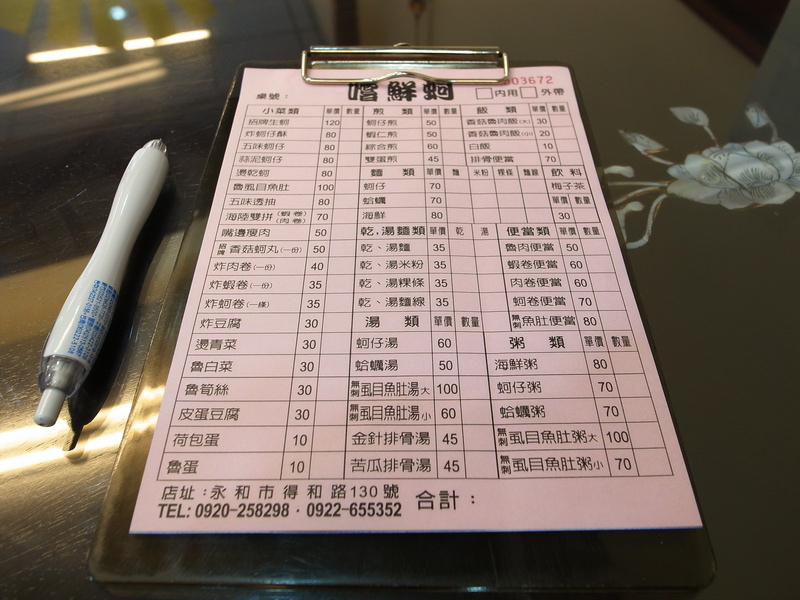 03672
桌號：
嚐鮮蚵
內用 外帶
小菜類 單價 數量
招牌生蚵 120
炸蚵仔酥 80
五味蚵仔 80
蒜泥蚵仔 80
燙乾蚵 80
魯虱目魚肚 100
五味透抽 80
海陸雙拼(蝦卷)(肉卷) 70
嘴邊瘦肉 50
招牌香菇蚵丸(一份) 50
炸肉卷(一份) 40
炸蝦卷(一份) 35
炸蚵卷(一條) 35
炸豆腐 30
燙青菜 30
魯白菜 30
魯筍絲 30
皮蛋豆腐 30
荷包蛋 10
魯蛋 10
煎類 單價 數量
蚵仔煎 50
蝦仁煎 50
綜合煎 60
雙蛋煎 45
麵類 單價 麵 米粉 粿條 麵線
蚵仔 70
蛤蠣 70
海鮮 80
乾,湯麵類 單價 乾 湯
乾、湯麵 35
乾、湯米粉 35
乾、湯粿條 35
乾、湯麵線 35
湯類 單價 數量
蚵仔湯 60
蛤蠣湯 50
無刺虱目魚肚湯大 100
無刺虱目魚肚湯小 60
金針排骨湯 45
苦瓜排骨湯 45
飯類 單價 數量
香菇魯肉飯(大) 30
香菇魯肉飯(小) 20
白飯 10
排骨便當 70
飲料
梅子茶
單價 數量
30
便當類 單價 數量
魯肉便當 50
蝦卷便當 60
肉卷便當 60
蚵卷便當 70
無刺魚肚便當 80
粥類 單價 數量
海鮮粥 80
蚵仔粥 70
蛤蠣粥 70
無刺虱目魚肚粥大 100
無刺虱目魚肚粥小 70
店址：永和市得和路130號
TEL: 0920-258298 · 0922-655352
合計：